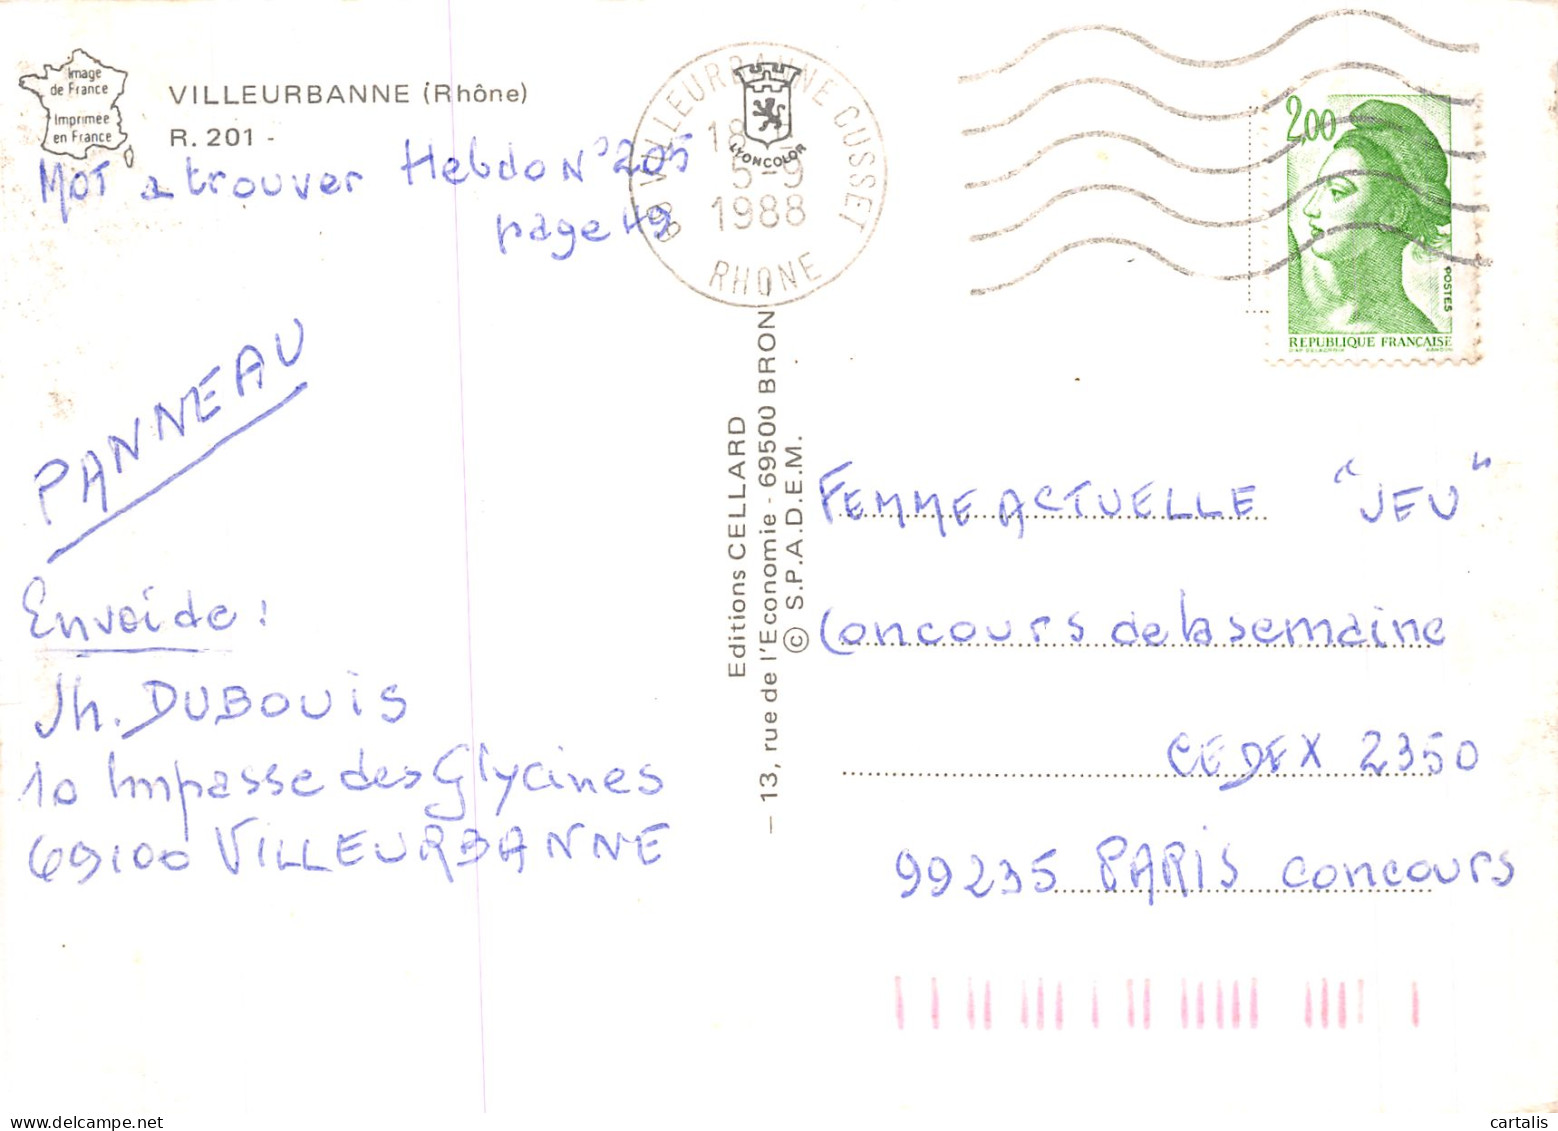 Image
de France
Imprimée
en France
VILLEURBANNE (Rhône)
R. 201 -
MOT a trouver Hebdo N° 205
page 49
PANNEAU
Envoi de :
Jh. DUBOUIS
10 Impasse des Glycines
69100 VILLEURBANNE
VILLEURBANNE CUSSET
5-9
1988
RHONE
LYONCOLOR
Editions CELLARD
— 13, rue de l'Economie - 69500 BRON
© S.P.A.D.E.M.
2,00
POSTES
REPUBLIQUE FRANÇAISE
D'AP. DELACROIX GANDON
FEMME ACTUELLE "JEU"
Concours de la semaine
CEDEX 2350
99235 PARIS concours
cartalis